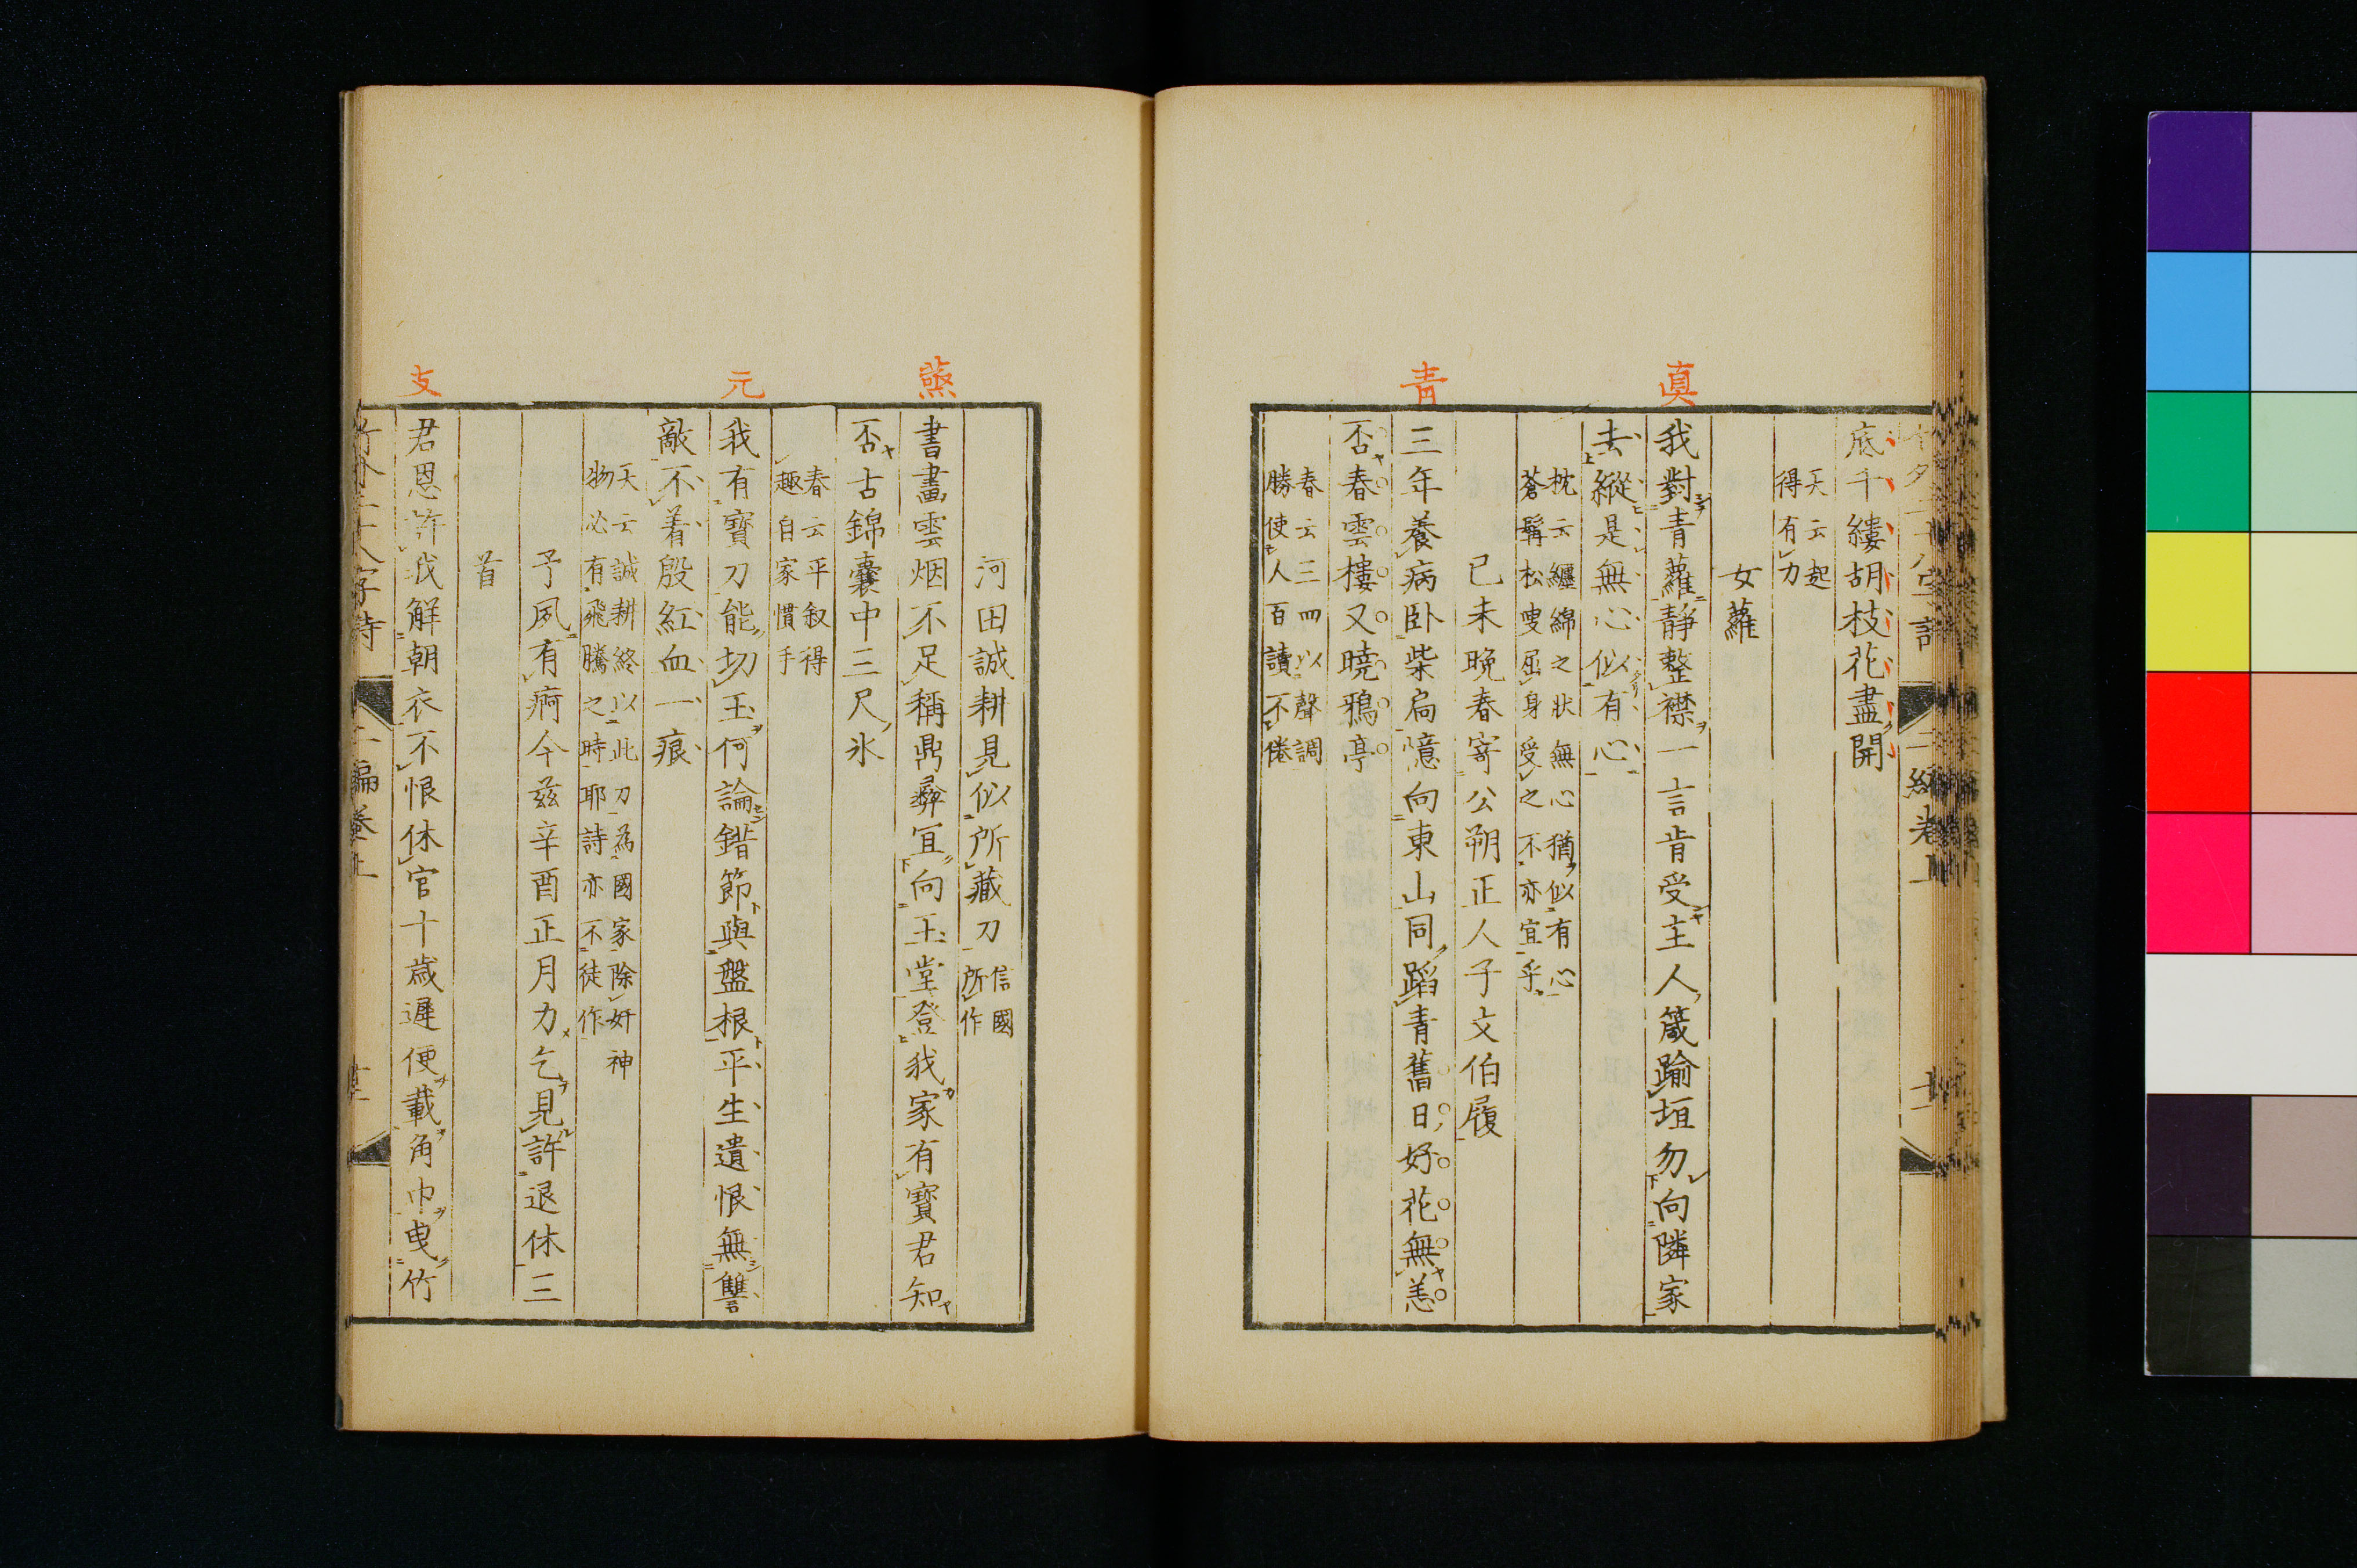 底千縷胡枝花盡開
天云起
得有力
女蘿
眞
我對青蘿靜整襟一言肯受主人箴踰垣勿向隣家
去縱是無心似有心
枕云纏綿之狀無心猶似有心
蒼髯松叟屈身受之不亦宜乎
己未晩春寄公朔正人子文伯履
青
三年養病卧柴扃憶向東山同蹈青舊日好花無恙
否春雲樓又曉鴉亭
春云三四以聲調
勝使人百讀不倦
河田誠耕見似所藏刀
信國
所作
蒸
書畫雲烟不足稱鼎彜冝向玉堂登我家有寶君知
否古錦囊中三尺氷
春云平叙得
趣自家慣手
元
我有寶刀能切玉何論錯節與盤根平生遺恨無讐
敵不着殷紅血一痕
天云誠耕終以此刀爲國家除奸神
物必有飛騰之時耶詩亦不徒作
予夙有痾今茲辛酉正月力乞見許退休三
首
支
君恩許我解朝衣不恨休官十歳遲便載角巾曳竹